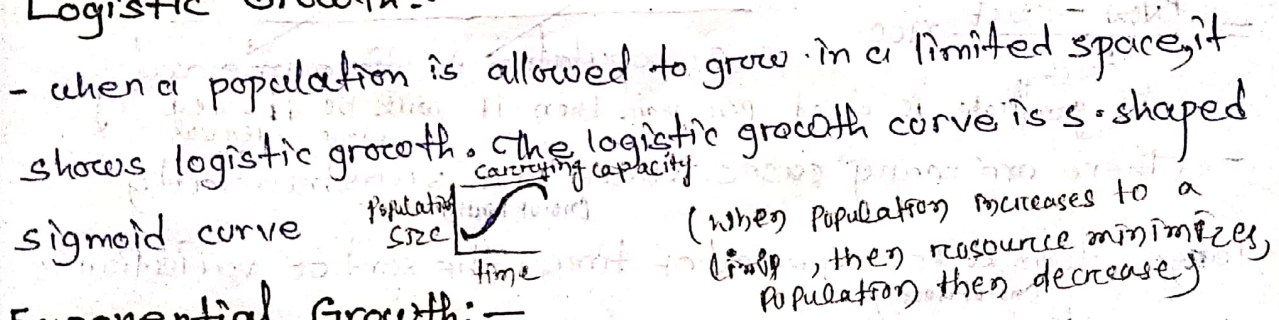 Logistic Growth:-
- when a population is allowed to grow in a limited space, it
shows logistic growth. The logistic growth curve is s-shaped
sigmoid curve
carrying capacity
Population
size
time
(when population increases to a
limit, then resource minimizes,
population then decreases)
Exponential Growth:-